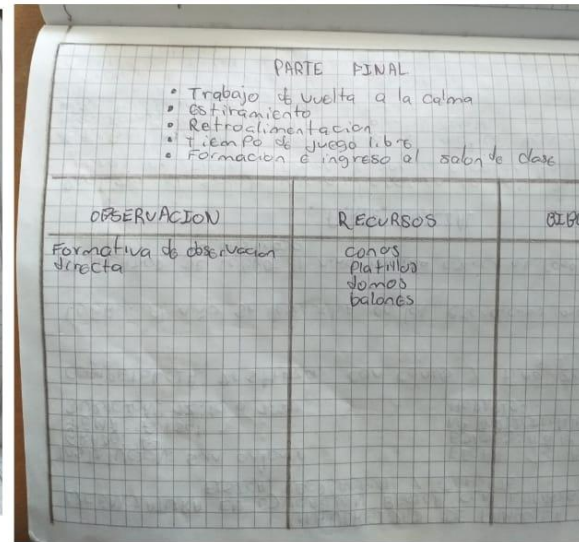 PARTE FINAL
• Trabajo de vuelta a la calma
• estiramiento
• Retroalimentacion
• Tiempo de juego libre
• Formacion e ingreso al salon de clase
OBSERVACION RECURSOS
Formativa de observacion
directa
conos
Platillos
domos
balones